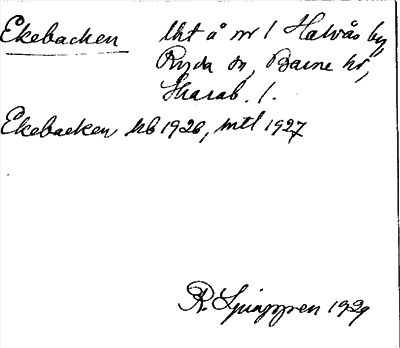 Ekebacken lht å nr 1 Halvås by,
Ryda sn, Barne hd,
Skarab. l.
Ekebacken kb 1926, mtl 1927
R. Ljunggren 1929